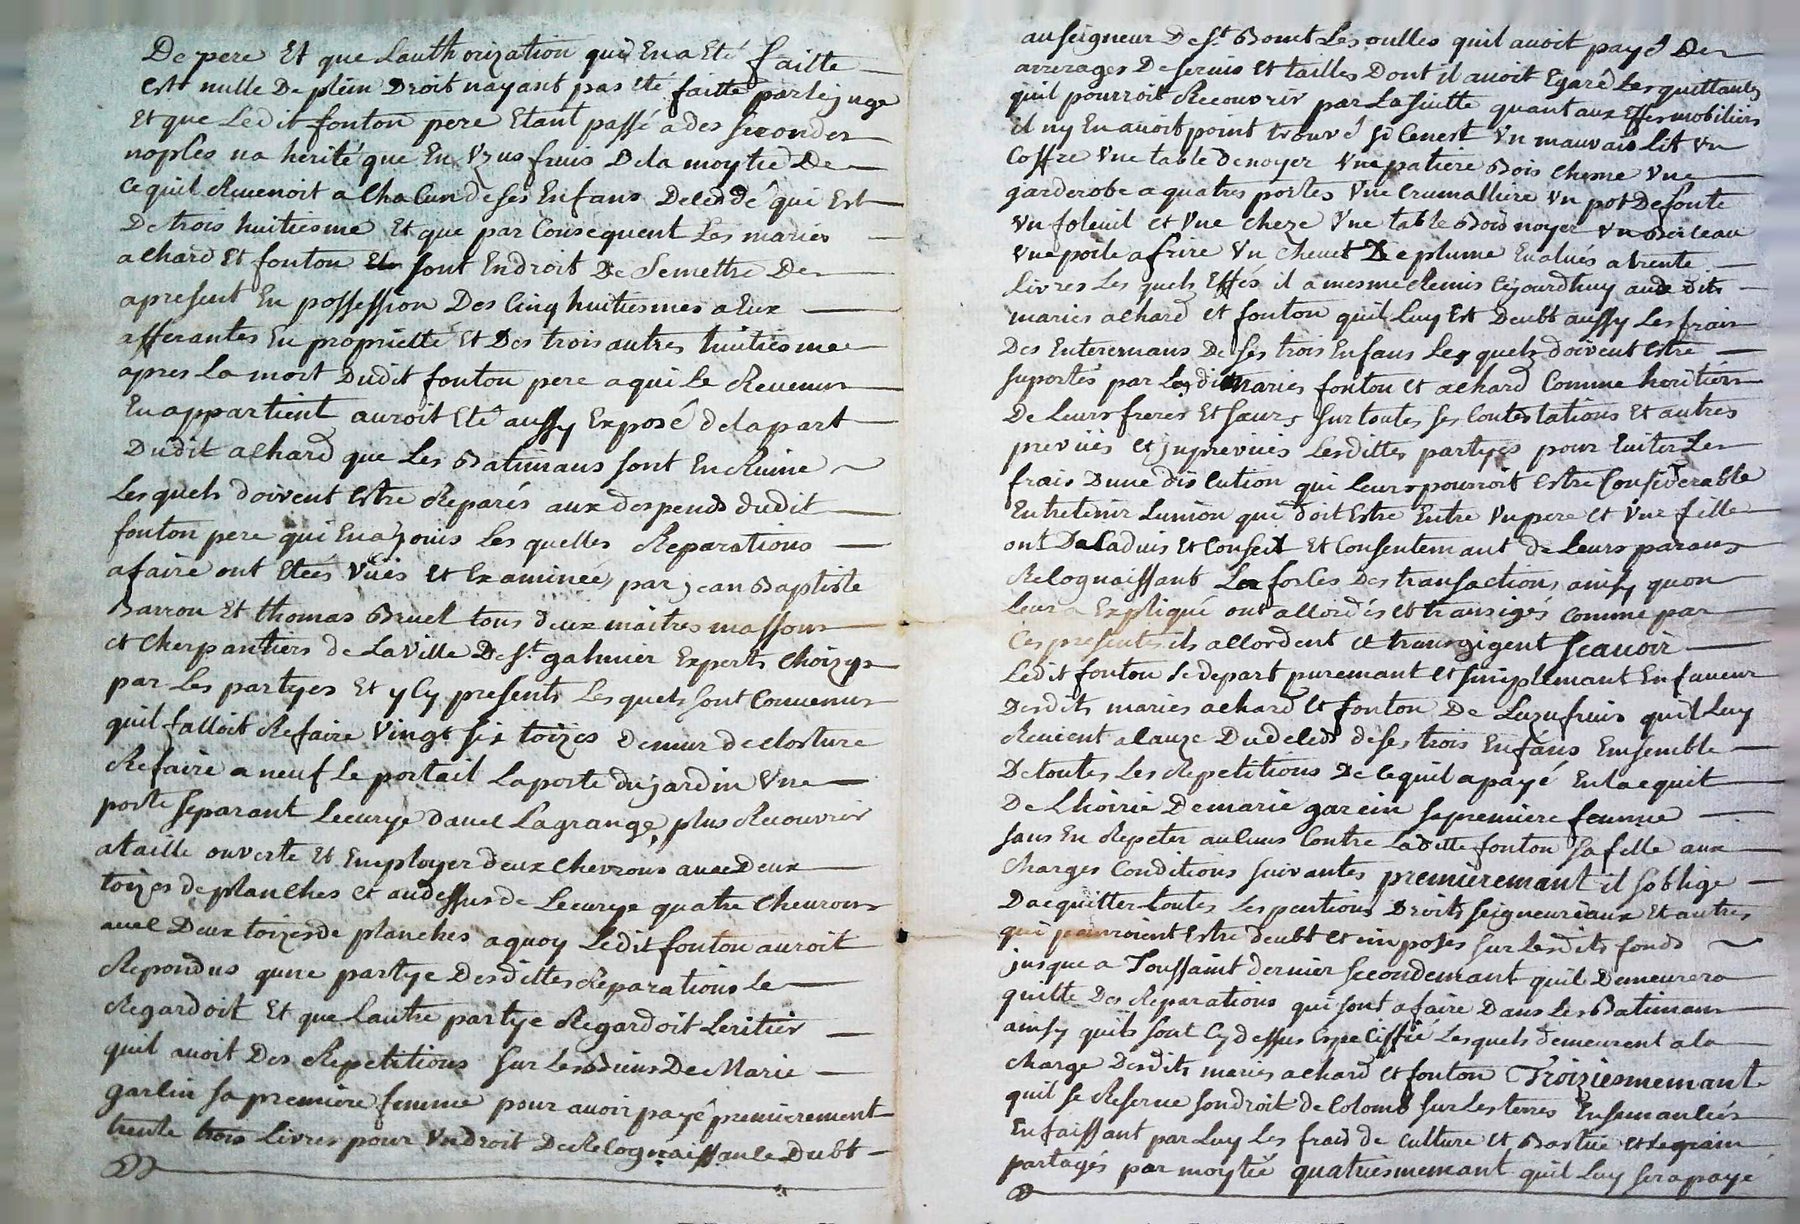 De pere Et que Lauthorization qui En a Eté faitte
Est nulle De plein Droit nayant pas Eté faitte par le juge
Et que Ledit fonton pere Etant passé a des secondes
nopses na herité que En Uzusfruis De la moytié De
ce quil Revenoit a Chacun de ses Enfans Deledé qui Est
De trois huitiesme Et que par Consequent Les mariés
achard Et fonton sont En droit De Se mettre De
apresent En possession Des Cinq huitiesmes a Eux
afferantes En propriette Et Des trois autres huitiesme
apres La mort Dudit fonton pere a qui le Revenus
En appartient auroit Eté aussy Exposé de la part
Dudit achard que Les Batimans sont En Ruine
Lesquels doivent Estre Reparés aux despends dudit
fonton pere qui En a jouis Les quelles Reparations
a faire ont Etées Vües Et Examinées par jean Baptiste
Barrou Et thomas Bruel tous deux maitres massons
et Cherpantiers de La Ville De St galmier Experts Choizys
par Les partyes Et y Cy presents Lesquels sont Convenus
quil falloit Refaire Vingt six toizes de mur de closture
Refaire a neuf Le portail La porte du jardin Vne
porte separant Lecurye davec La grange, plus Recouvrir
a taille ouverte Et Employer deux chevrons avec Deux
toizes de planches et au dessus de Lecurye quatre Chevrons
avec Deux toizes de planches a quoy Ledit fonton auroit
Repondus qune partye Desdittes Reparations Le
Regardoit Et que Lautre partye Regardoit Leritier
quil avoit Des Repetitions sur Les Biens De Marie
garcin sa premiere femme pour avoir payé premierement
trente trois Livres pour Vn droit De Recognaissance Dubt
au seigneur De St Bonet Les oulles quil avoit payé De
arrerages De servis Et tailles Dont il avoit Egaré Les quittantes
quil pourroit Recouvrir par La suitte quant aux Effes mobiliers
il ny En avoit point trouvé si Cenest Vn mauvais Lit Vn
Coffre Vne table de noyer Vne patiere Bois chesne Vne
garderobe a quatres portes Vne Crumalliere Vn pot De fonte
Vn foteuil et Vne cheze Vne table Bois noyer Vn Berceau
Vne poile a frire Vn Chevet De plume Evalués a trente
Livres Les quels Effés il a mesme Remis Cejourdhuy aux dits
mariés achard et fonton quil Luy Est Deubt aussy Les frais
Des Enteremans De ses trois Enfans Lesquels doivent Estre
suportés par Lesdits mariés fonton et achard Comme heritiers
De Leurs freres Et sœurs sur toutes ses Contestations Et autres
prevües et jmprevües Lesdittes partyes pour Eviter Les
frais Dune discution qui Leurs pourroit Estre Considerable
Entretenir Lunion qui doit Estre Entre Vn pere et Vne fille
ont De Ladvis Et Conseit Et Consentemant de Leurs parans
Recognaissant Les forses Des transactions ainsy quon
Leur a Expliqué ont accordés et transigés comme par
Ces presentes ils accordent et transigent Scavoir
Ledit fonton se depart puremant et simplemant En faveur
Desdits mariés achard Et fonton De Luzufruis quil Luy
Revient a Cauze Du deled de ses trois Enfans Emsemble
De toutes Les Repetitions De Ce quil a payé En Lacquit
De Lhoirie De marie garcin sa premiere femme
sans En Repeter aucuns Contre Laditte fonton sa fille aux
Charges Conditions suivantes premieremant il soblige
Dacquitter toutes Les pentions Droits seigneuriaux Et autres
qui pouroient Estre deubt et imposes sur Lesdits fonds
jusque a Toussaint dernier secondemant quil Demeurera
quitte Des Reparations qui sont a faire Dans Les Batimans
ainsy quils sont Cy dessus Expeciffié Lesquels demeurent a la
charge Desdits mariés achard et fonton Troiziesmemant
quil se Reserve son droit de Colomb sur Les terres Ensemancées
En faissant par Luy Les frais de culture Et Bastue et Le grain
partagés par moytié quatriesmemant quil Luy sera payé